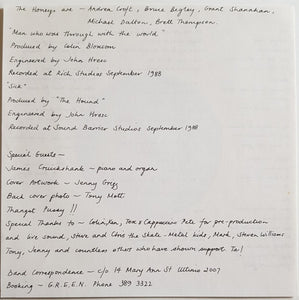 The Honeys are — Andrea Croft, Bruce Begley, Grant Shanahan,
Michael Dalton, Brett Thompson.
"Man who was through with the world"
Produced by Colin Bloxsom
Engineered by John
Recorded at Rich Studios September 1988
Produced by "The Hound"
Engineered by John
Recorded at Sound Barrier Studios September 1988
Special Guests —
James Cruickshank — piano and organ
Cover Artwork — Jenny Gregg
Back cover photo — Tony Mott
Special Thanks to — Colin, Ken, Tex & Cappuccino Pete for pre-production
and live sound, Steve and Chris the Skate-Metal kids, Mark, Steven Williams
Tony, Jenny and countless others who have shown support. Ta!
Band Correspondence — c/o 14 Mary Ann St Ultimo 2007
Booking — G.R.E.E.N. Phone 389 3322